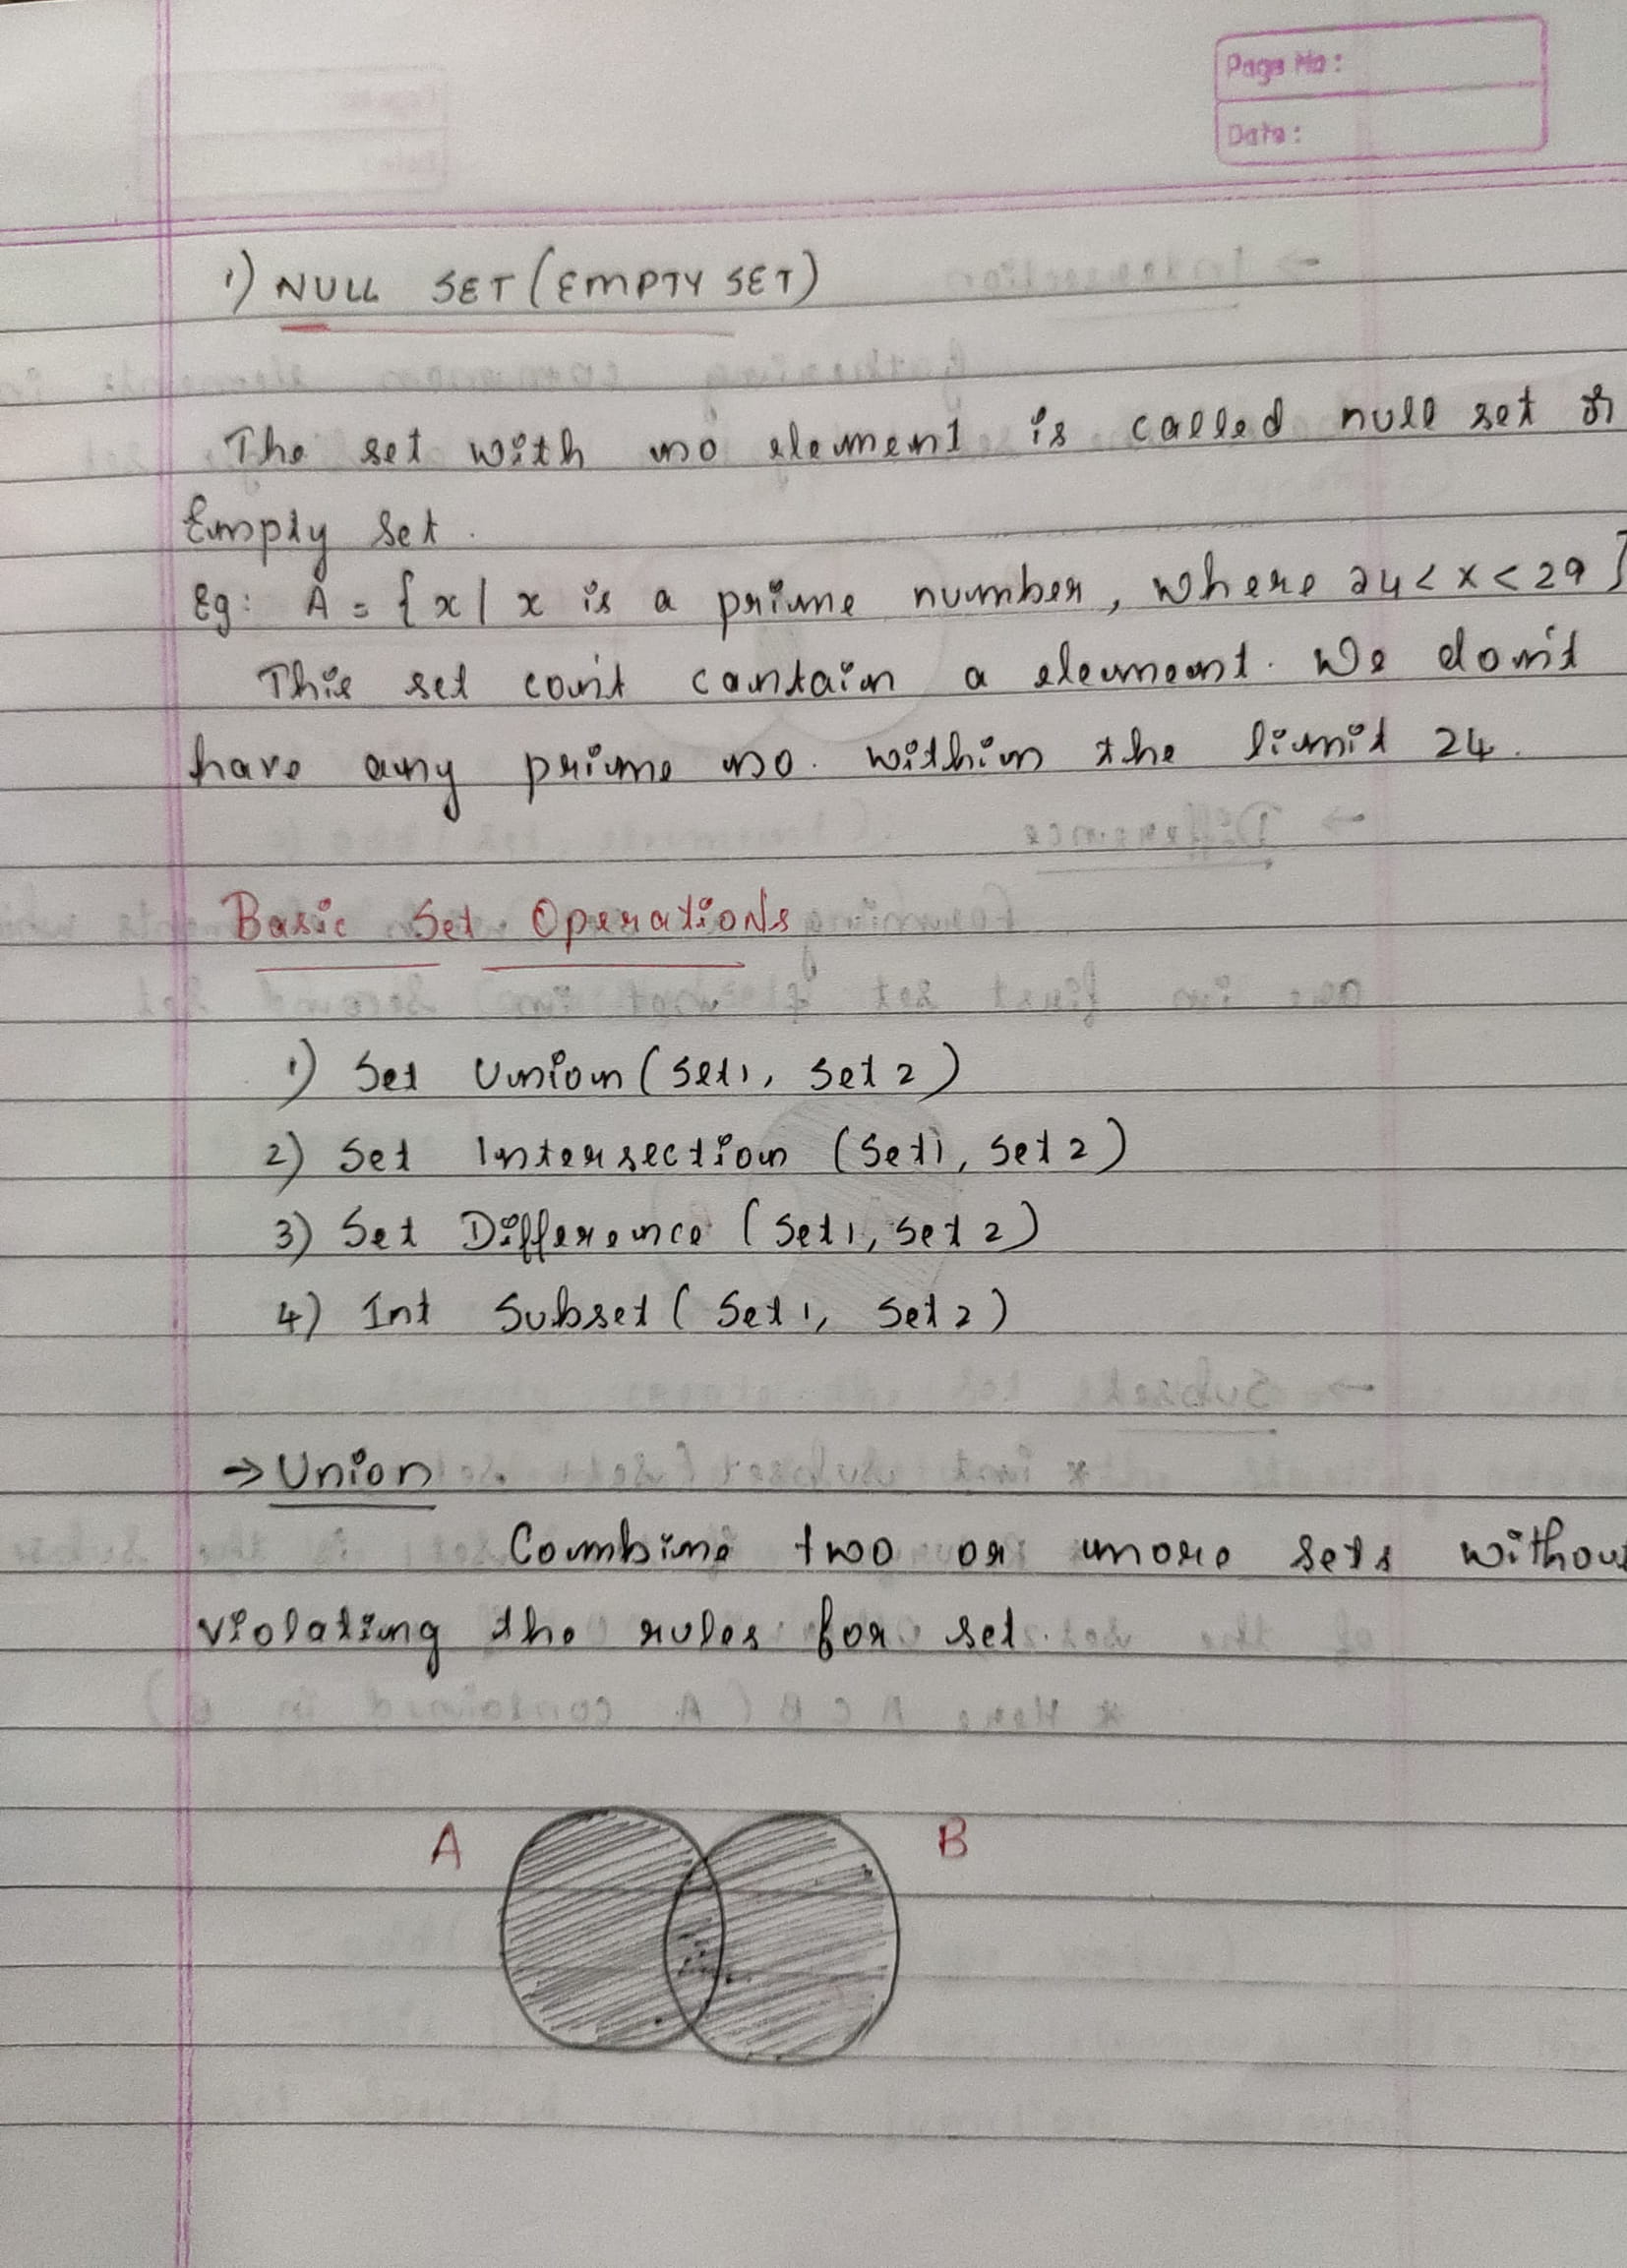 Page No:
Date:
1) NULL SET (EMPTY SET)
The set with no element is called null set or
Empty set.
Eg: A = { x | x is a prime number, where 24 < x < 29 }
This set con't contain a element. We don't
have any prime no. within the limit 24.
Basic Set Operations
1) Set Union (Set1, Set 2)
2) Set Intersection (Set1, Set 2)
3) Set Difference (Set1, Set 2)
4) Int Subset (Set 1, Set 2)
→ Union
Combine two or more sets without
violating the rules for set.
A B